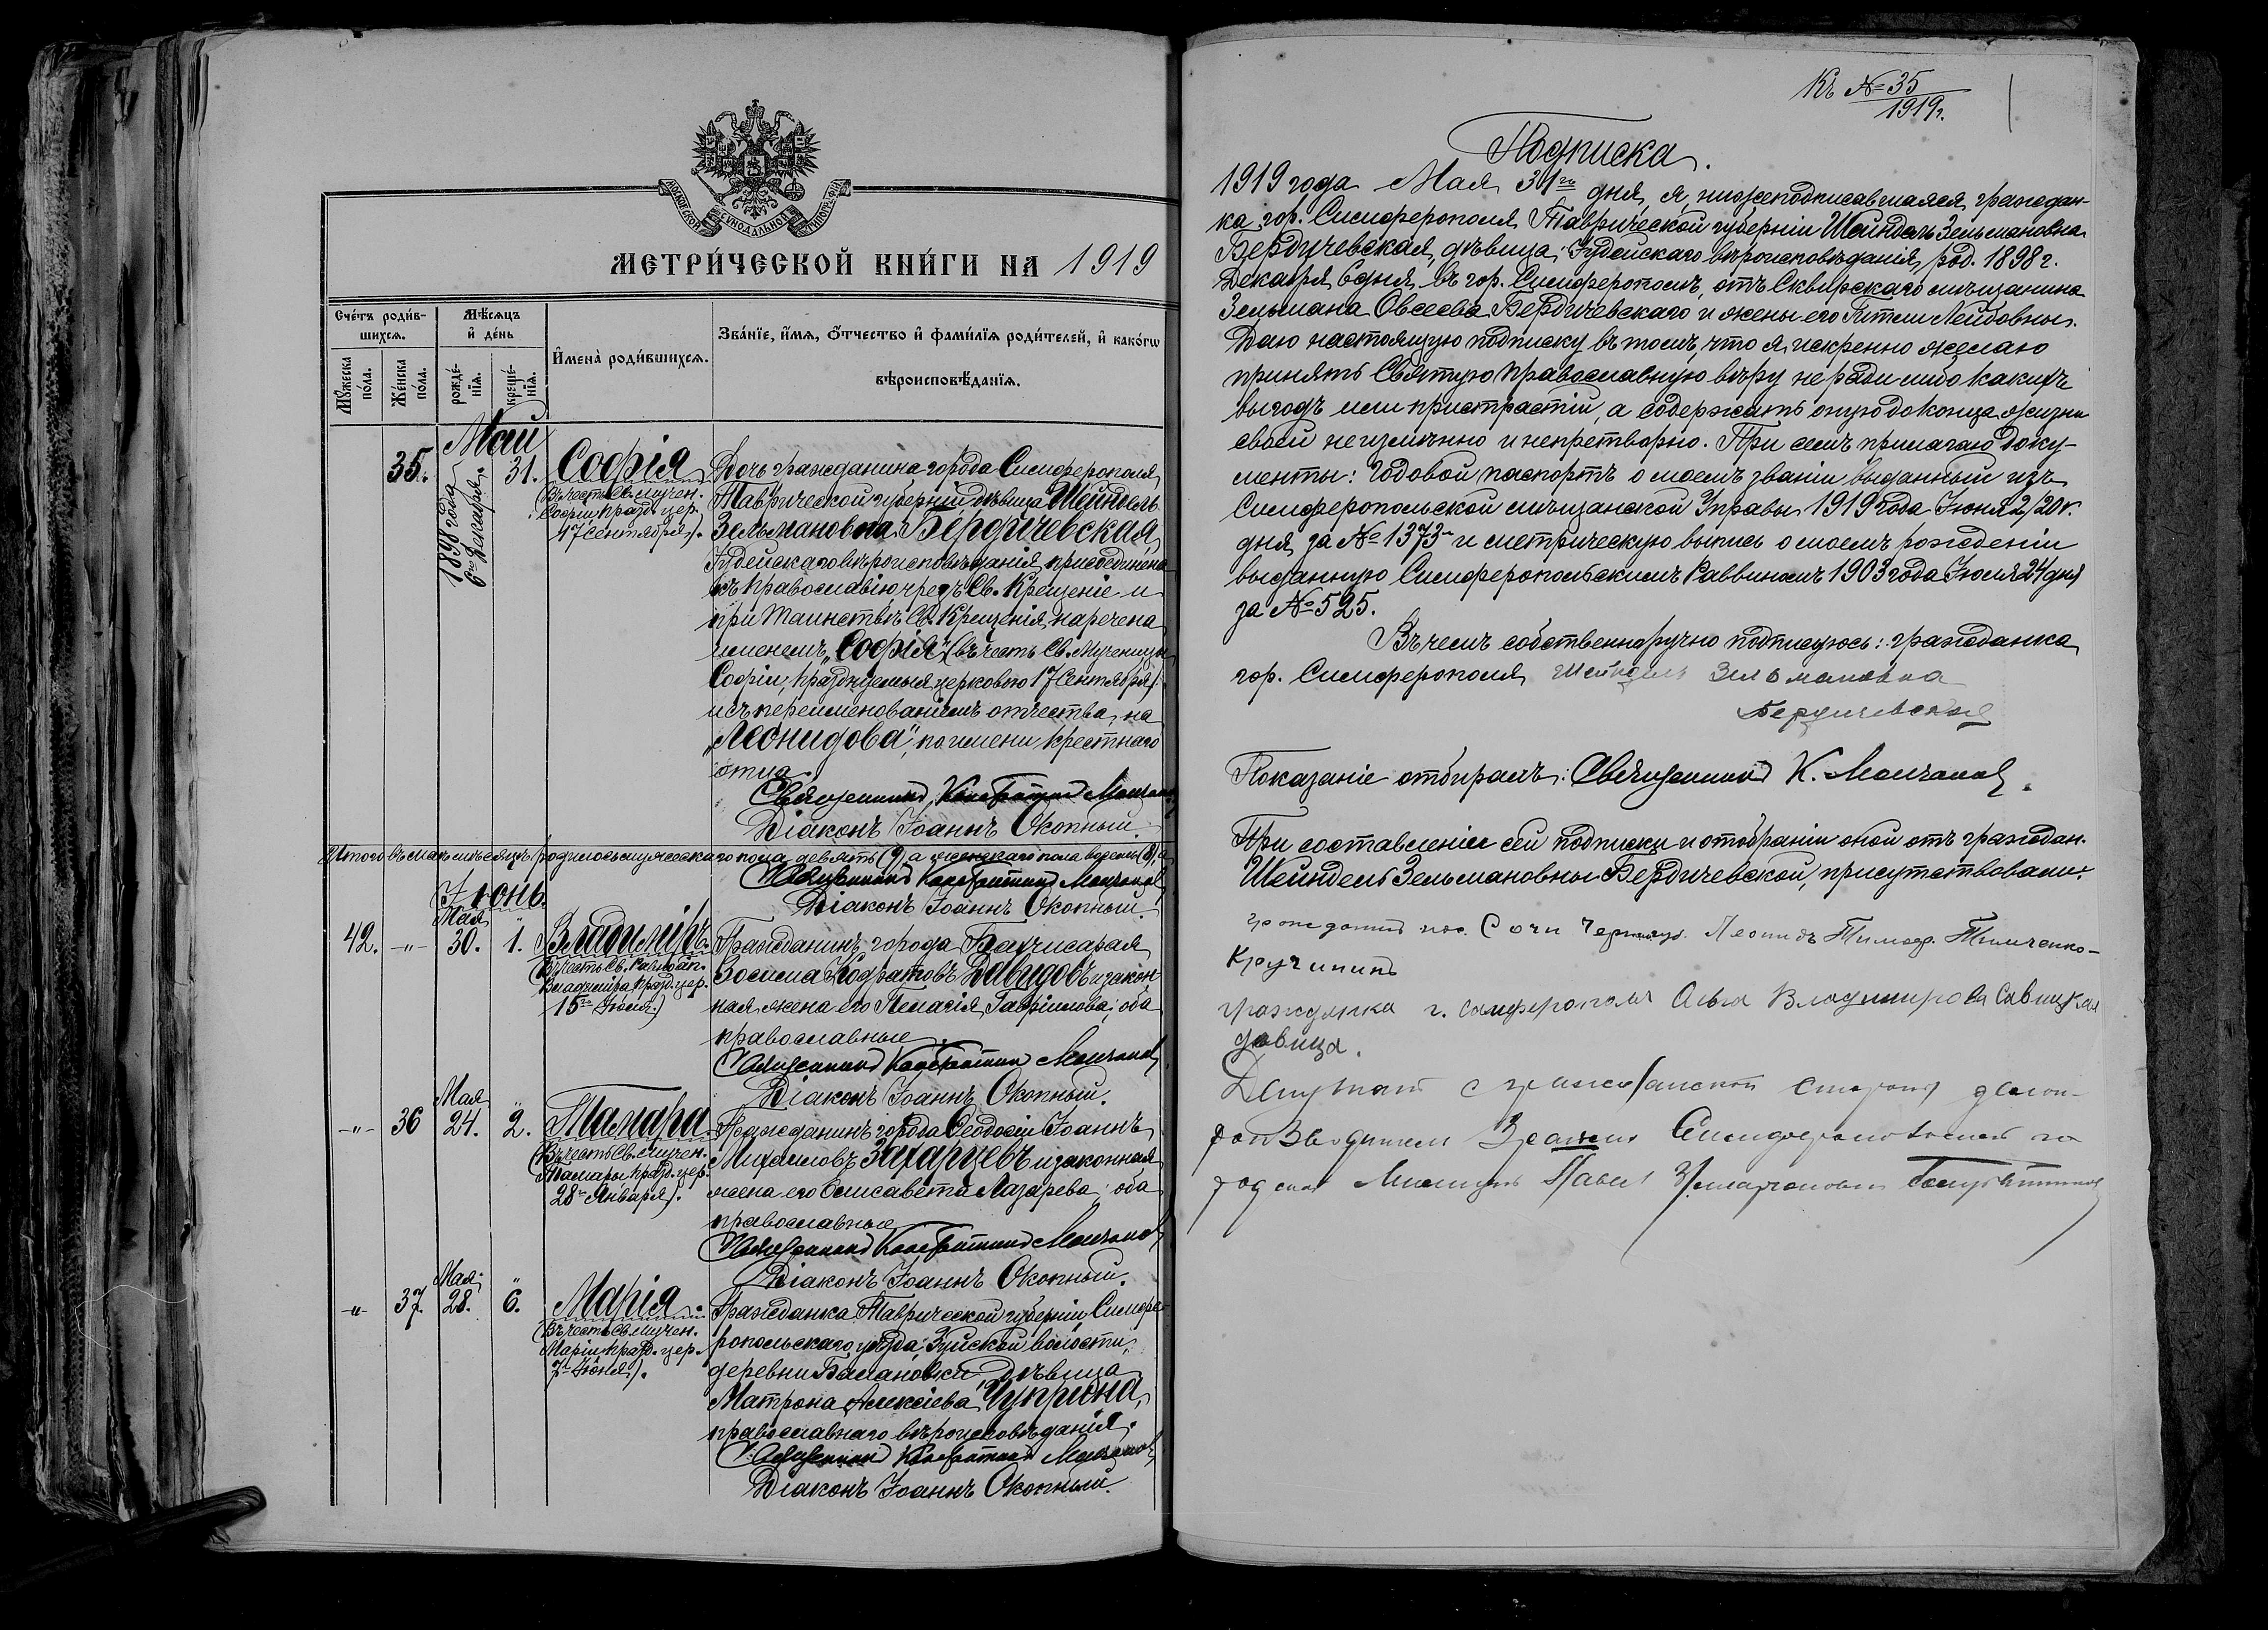 МОСКОВСКОЙ СѴНОДАЛЬНОЙ ТИПОГРАФІИ
МЕТРИ́ЧЕСКОЙ КНИ́ГИ НА 1919
Сче́тъ роди́в-
шихсѧ.
Мꙋ́жеска
по́ла.
Же́нска
по́ла.
Мѣ́сѧцъ
и҆ де́нь
рожде́-
нїѧ.
креще́-
нїѧ.
И҆мена̀ роди́вшихсѧ.
Зва́нїе, и҆́мѧ, ѻ҆́тчество и҆ фами́лїѧ роди́телей, и҆ како́гѡ
вѣроисповѣ́данїѧ.
Май
35.
1898 года
6го Декабря.
31.
Софія
(Въ честь Св. мучен.
Софіи, празд. цер.
17 сентября).
Дочь гражданина города Симферополя,
Таврической губерніи дѣвица Шейндель
Зельмановна Бердичевская,
Іудейскаго вѣроисповѣданія, присоединена
къ Православію чрезъ Св. Крещеніе и
при Таинствѣ Св. Крещенія, наречена
именемъ „Софія" (въ честь Св. Мученицы
Софіи, празднуемыя церковью 17 Сентября)
и съ переименованіемъ отчества, на
„Леонидова", по имени крестнаго
отца.
Священникъ Константинъ Молчановъ
Діаконъ Іоаннъ Окопный.
Итого въ маѣ мѣсяцѣ родилось мужескаго пола девять (9), а женскаго пола восемь (8)
Священникъ Константинъ Молчановъ
Діаконъ Іоаннъ Окопный.
Іюнь.
42.
-„-
Мая
30.
1.
Владиміръ.
(Въ честь Св. Равноап.
Владиміра празд. цер.
15го Іюля.)
Гражданинъ города Бахчисарая
Зосима Кодратовъ Давидовъ и закон-
ная жена его Пелагія Гавріилова; оба
православные.
Священникъ Константинъ Молчановъ
Діаконъ Іоаннъ Окопный.
-„-
36
Мая
24.
2.
Тамара
(Въ честь Св. мучен.
Тамары празд. цер.
28 Января).
Гражданинъ города Ѳеодосіи Іоаннъ
Михаиловъ Захарцевъ и законная
жена его Елисавета Лазарева; оба
православные
Священникъ Константинъ Молчановъ
Діаконъ Іоаннъ Окопный.
-„-
37.
Мая
28.
6.
Марія.
(Въ честь Св. мучен.
Маріи, празд. цер.
7 Іюня).
Гражданка Таврической губерніи, Симфе-
ропольскаго уѣзда, Зуйской волости,
деревни Балановки дѣвица
Матрона Алексіева Чуприна,
православнаго вѣроисповѣданія.
Священникъ Константинъ Молчановъ
Діаконъ Іоаннъ Окопный.
Къ № 35
1919г.
Подписка.
1919 года Мая 31го дня, я, нижеподписавшаяся, граждан-
ка гор. Симферополя Таврической губерніи Шейндель Зельмановна
Бердичевская, дѣвица, Іудейскаго вѣроисповѣданія, род. 1898 г.
Декабря 6 дня, въ гор. Симферополѣ, отъ Сквирскаго мѣщанина
Зельмана Овсеева Бердичевскаго и жены его Гитли Лейбовны.
Даю настоящую подписку въ томъ, что я, искренно желаю
принять Святую Православную вѣру не ради либо какихъ
выгодъ или пристрастій, а содержать оную до конца жизни
своей неизмѣнно и непретворно. При семъ прилагаю доку-
менты: годовой паспортъ о моемъ званіи выданный изъ
Симферопольской мѣщанской Управы 1919 года Іюня 2/20 г.
дня за № 1373 и метрическую выпись о моемъ рожденіи
выданную Симферопольскимъ Раввиномъ 1903 года Іюля 24 дня
за № 525.
Въ чемъ собственноручно подписуюсь: гражданка
гор. Симферополя Шейндель Зельмановна
Бердичевская
Показаніе отбиралъ: Священникъ К. Молчановъ.
При составленіи сей подписки и отобраніи оной отъ граждан.
Шейндель Зельмановны Бердичевской, присутствовали:
гражданинъ пос. Сочи Леонидъ Тимоф. Тимченко-
Кручининъ
гражданка г. Симферополя Ольга Владимирова Савицкая
дѣвица.
Депутатъ с гражданской стороны
Павелъ